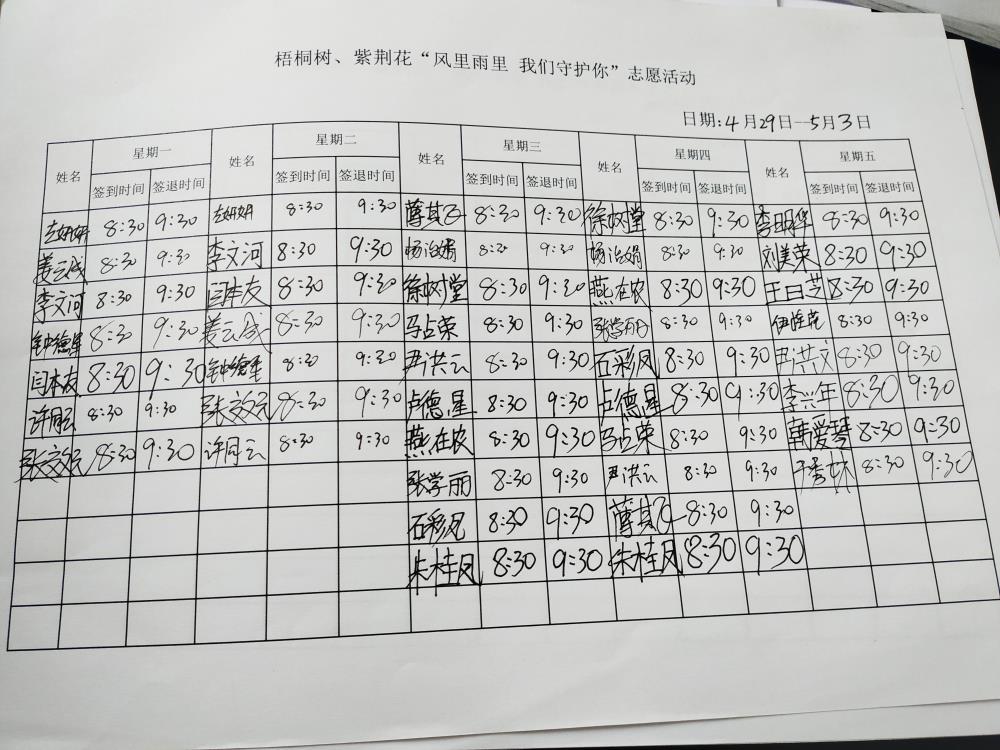 梧桐树、紫荆花“风里雨里 我们守护你”志愿活动
日期:4月29日--5月3日
姓名 星期一 姓名 星期二 姓名 星期三 姓名 星期四 姓名 星期五
签到时间 签退时间 签到时间 签退时间 签到时间 签退时间 签到时间 签退时间 签到时间 签退时间
8:30 9:30 8:30 9:30 薄其飞 8:30 9:30 徐树堂 8:30 9:30 李明华 8:30 9:30
姜云成 8:30 9:30 李文河 8:30 9:30 杨治娟 8:30 9:30 杨治娟 8:30 9:30 刘美荣 8:30 9:30
李文河 8:30 9:30 闫本友 8:30 9:30 徐树堂 8:30 9:30 燕在农 8:30 9:30 王曰芝 8:30 9:30
钟德星 8:30 9:30 姜云成 8:30 9:30 马占荣 8:30 9:30 张学丽 8:30 9:30 8:30 9:30
闫本友 8:30 9:30 8:30 9:30 尹洪云 8:30 9:30 石彩凤 8:30 9:30 尹洪文 8:30 9:30
许同云 8:30 9:30 张效元 8:30 9:30 卢德星 8:30 9:30 卢德星 8:30 9:30 李兴年 8:30 9:30
张效元 8:30 9:30 许同云 8:30 9:30 燕在农 8:30 9:30 马占荣 8:30 9:30 韩爱琴 8:30 9:30
张学丽 8:30 9:30 尹洪云 8:30 9:30 于秀林 8:30 9:30
石彩凤 8:30 9:30 薄其飞 8:30 9:30
朱桂凤 8:30 9:30 朱桂凤 8:30 9:30